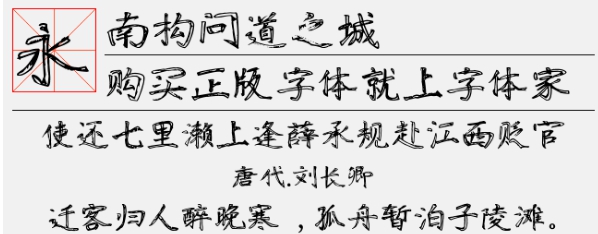 永
南构问道之城
购买正版字体就上字体家
使还七里濑上逢薛承规赴江西贬官
唐代.刘长卿
迁客归人醉晚寒，孤舟暂泊子陵滩。